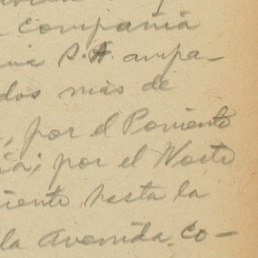 Compañia
S.A. ampa-
dos más de
, por el Poniente
; por el Norte
iente hasta la
la Avenida, Co-